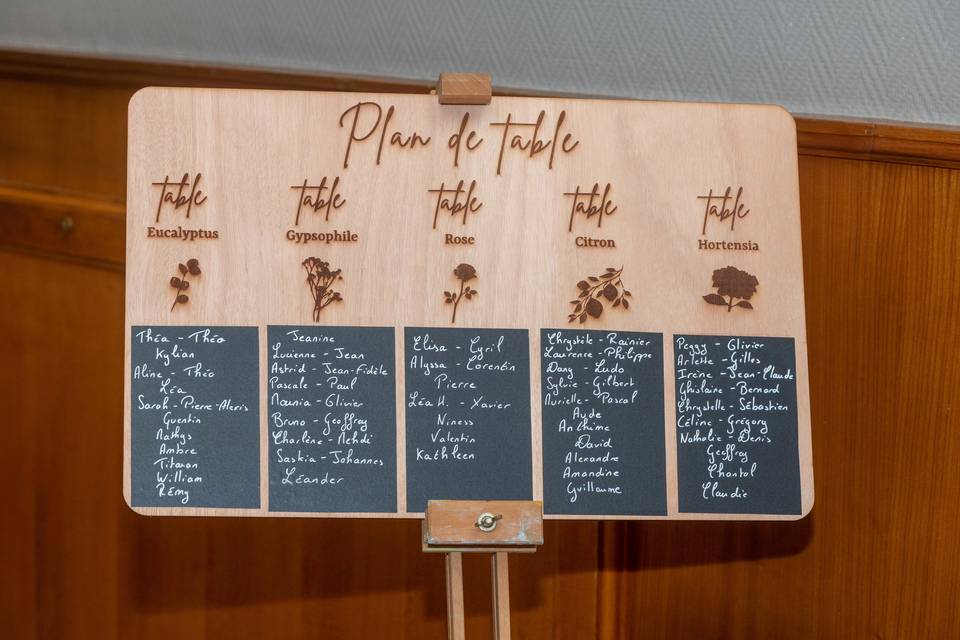 Plan de table
table
Eucalyptus
Théa - Théo
Kylian
Aline - Théo
Léa
Sarah - Pierre-Alexis
Quentin
Mathys
Ambre
Titouan
William
Rémy
table
Gypsophile
Jeanine
Lucienne - Jean
Astrid - Jean-Fidèle
Pascale - Paul
Mounia - Olivier
Bruno - Geoffrey
Charlène - Mehdi
Saskia - Johannes
Léander
table
Rose
Elisa - Cyril
Alyssa - Corentin
Pierre
Léa H. - Xavier
Niness
Valentin
Kathleen
table
Citron
Chrystèle - Rainier
Laurence - Philippe
Dany - Ludo
Sylvie - Gilbert
Murielle - Pascal
Aude
Anthime
David
Alexandre
Amandine
Guillaume
table
Hortensia
Peggy - Olivier
Arlette - Gilles
Irène - Jean-Claude
Ghislaine - Bernard
Chrystelle - Sébastien
Céline - Grégory
Nathalie - Denis
Geoffroy
Chantal
Claudie